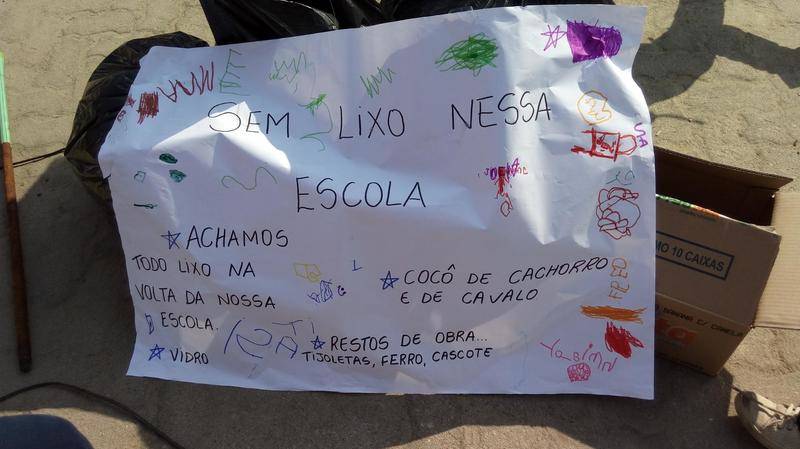 SEM LIXO NESSA
ESCOLA
ACHAMOS
TODO LIXO NA
VOLTA DA NOSSA
ESCOLA.
VIDRO
COCÔ DE CACHORRO
E DE CAVALO
RESTOS DE OBRA...
TIJOLETAS, FERRO, CASCOTE
FRED
MO 10 CAIXAS